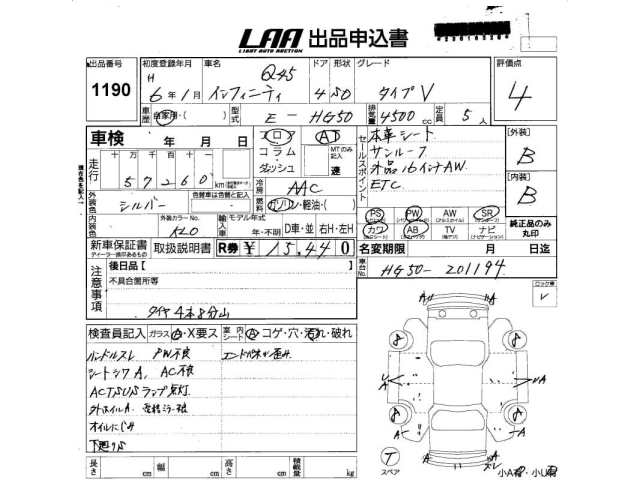 LAA 出品申込書
LIGHT AUTO AUCTION
出品番号 1190
初度登録年月 H 6年1月
車名 インフィニティ Q45
ドア 形状 4 SD
グレード タイプV
評価点 4
車歴 自家用・( )
型式 E-HG50
排気量 4500 cc
定員 5人
車検 年 月 日
走行 十万 万 千 百 十 57260 km
フロア コラム ダッシュ
AT
MTのみ記入 速
セールスポイント
本革シート
サンルーフ
純正16インチAW
ETC
[外装] B
[内装] B
外装色 シルバー
色替車は色替と記入
外装カラーNo. KL0
冷房 AAC
燃料 ガソリン・軽油・( )
輸入車 モデル年式 年・不明
D車・並 右H・左H
PS PW AW SR
カワ AB TV ナビ
純正品のみ丸印
新車保証書
ディーラー捺印あるもの
取扱説明書
R券 ¥15,440
名変期限 月 日迄
車台No. HG50-201194
ロック車 レ
注意事項
後日品[ ]
不具合箇所等
タイヤ4本8分山
検査員記入
ガラス A・X要ス
室内 シート A・コゲ・穴・汚れ・破れ
ハンドルスレ PW不良
シートシワA、AC不良
ACTSUSランプ点灯
外ホイルA
オイルにじみ
下廻りS
長さ cm
幅 cm
高さ cm
積載量 kg
T スペア